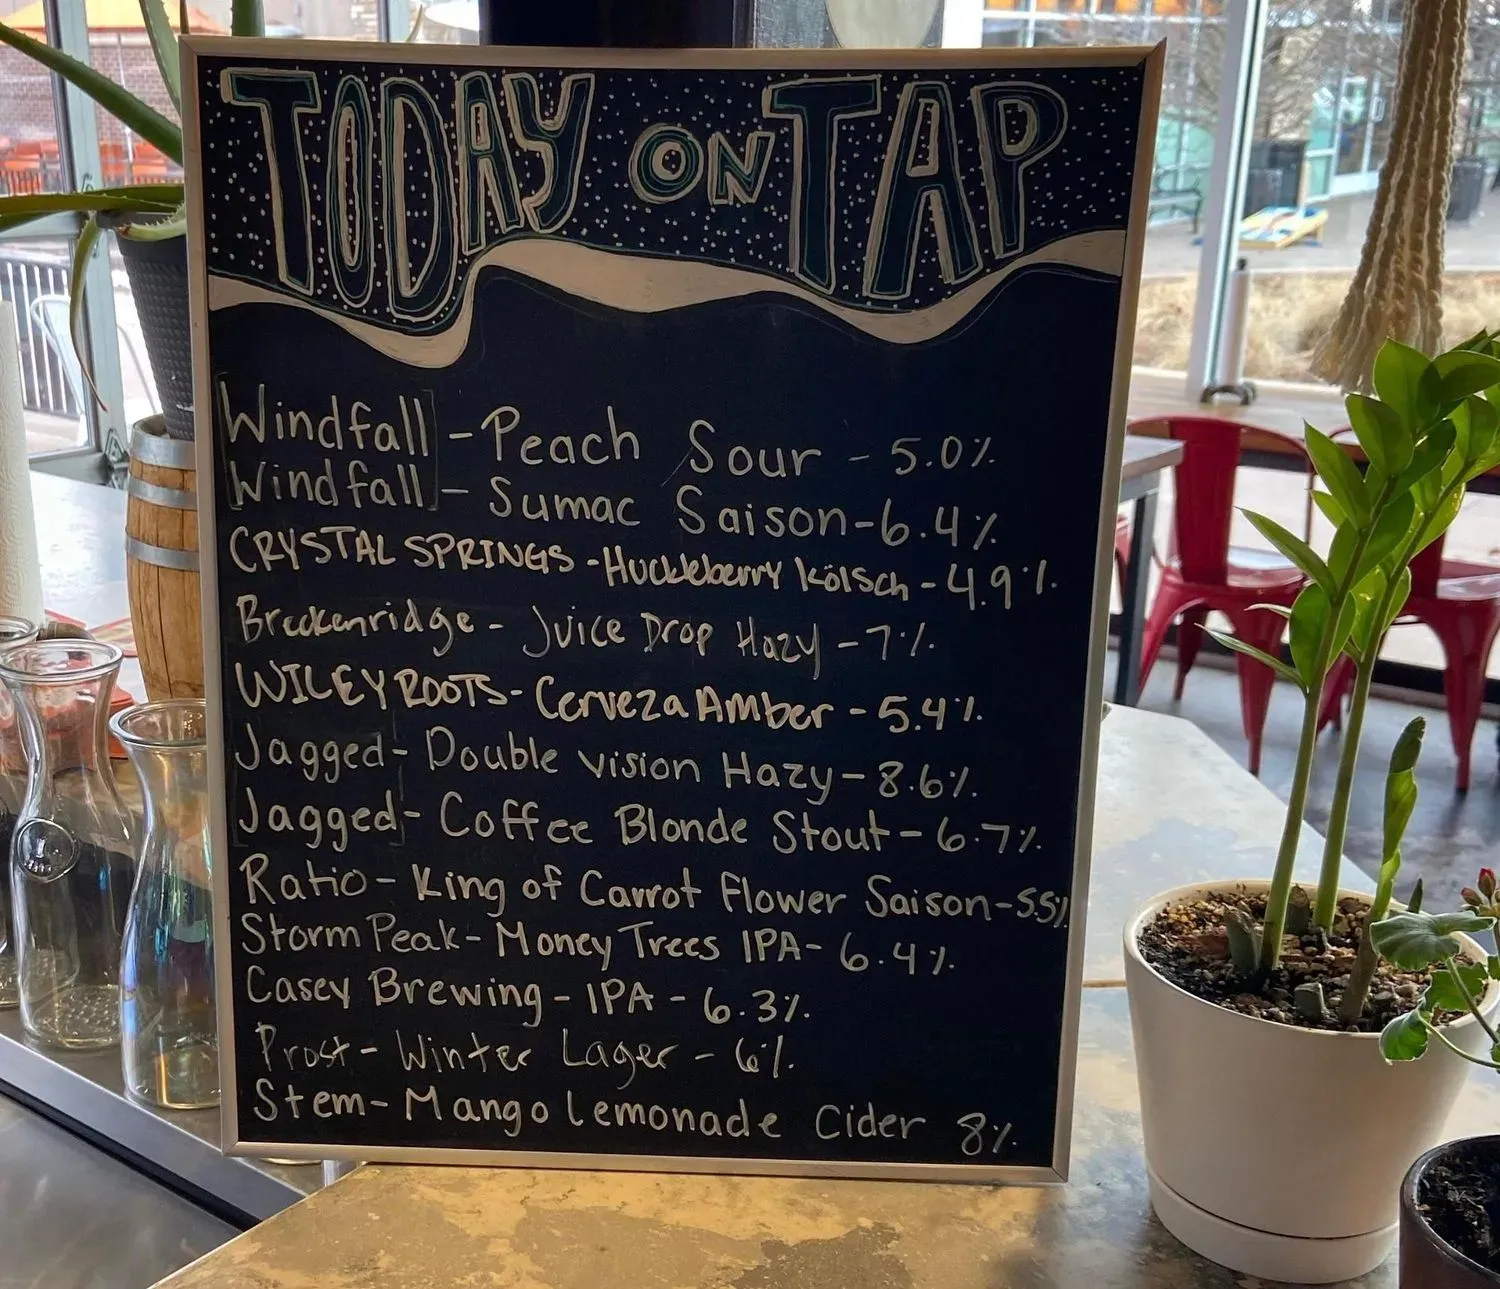 TODAY ON TAP
Windfall - Peach Sour - 5.0%
Windfall - Sumac Saison - 6.4%
CRYSTAL SPRINGS - Huckleberry Kölsch - 4.9%
Breckenridge - Juice Drop Hazy - 7%
WILEY ROOTS - Cerveza Amber - 5.4%
Jagged - Double vision Hazy - 8.6%
Jagged - Coffee Blonde Stout - 6.7%
Ratio - King of Carrot Flower Saison - 5.5%
Storm Peak - Money Trees IPA - 6.4%
Casey Brewing - IPA - 6.3%
Prost - Winter Lager - 6%
Stem - Mango Lemonade Cider 8%